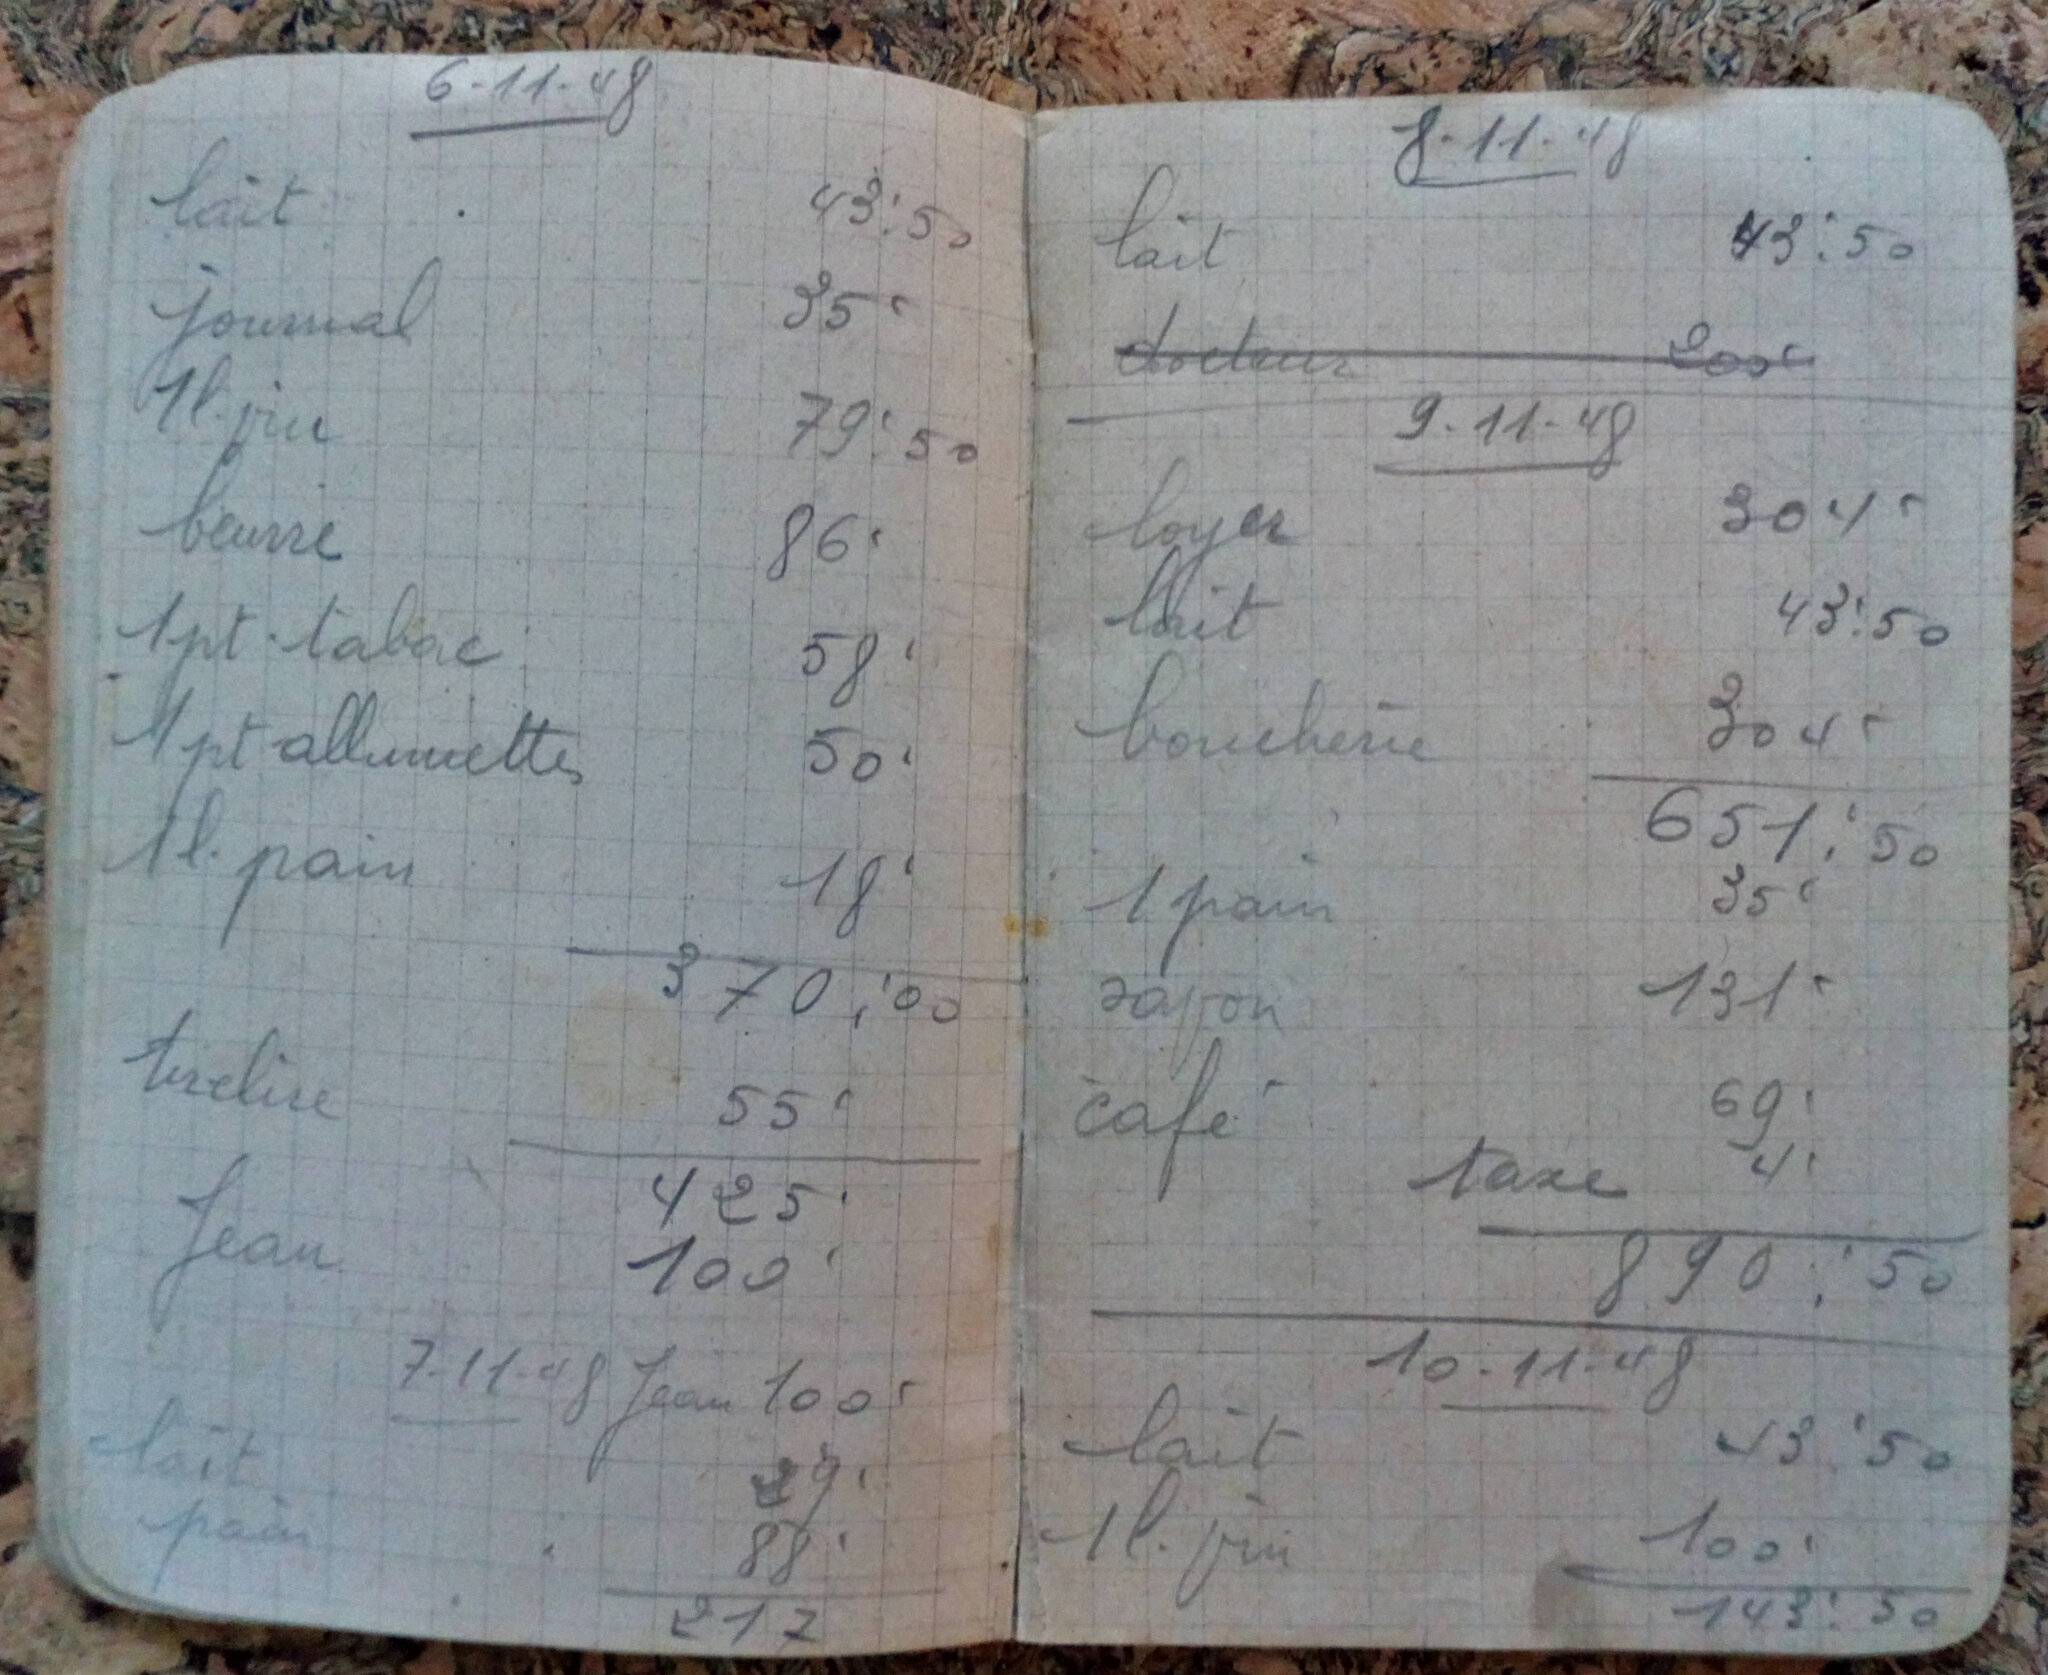 6-11-48
lait 43:50
journal 35'
1l. vin 79:50
beurre 86'
1pt. tabac 58'
1pt allumettes 50'
1l. pain 18'
370:00
tirelire 55'
425'
Jean 100'
7-11-48 Jean 100'
lait 29'
pain 88'
217
8-11-48
lait 43:50
docteur 200'
9-11-48
loyer 304'
lait 43:50
boucherie 304'
651:50
1 pain 35'
savon 131'
café 69'
taxe 4'
890:50
10-11-48
lait 43:50
1l. vin 100'
143:50